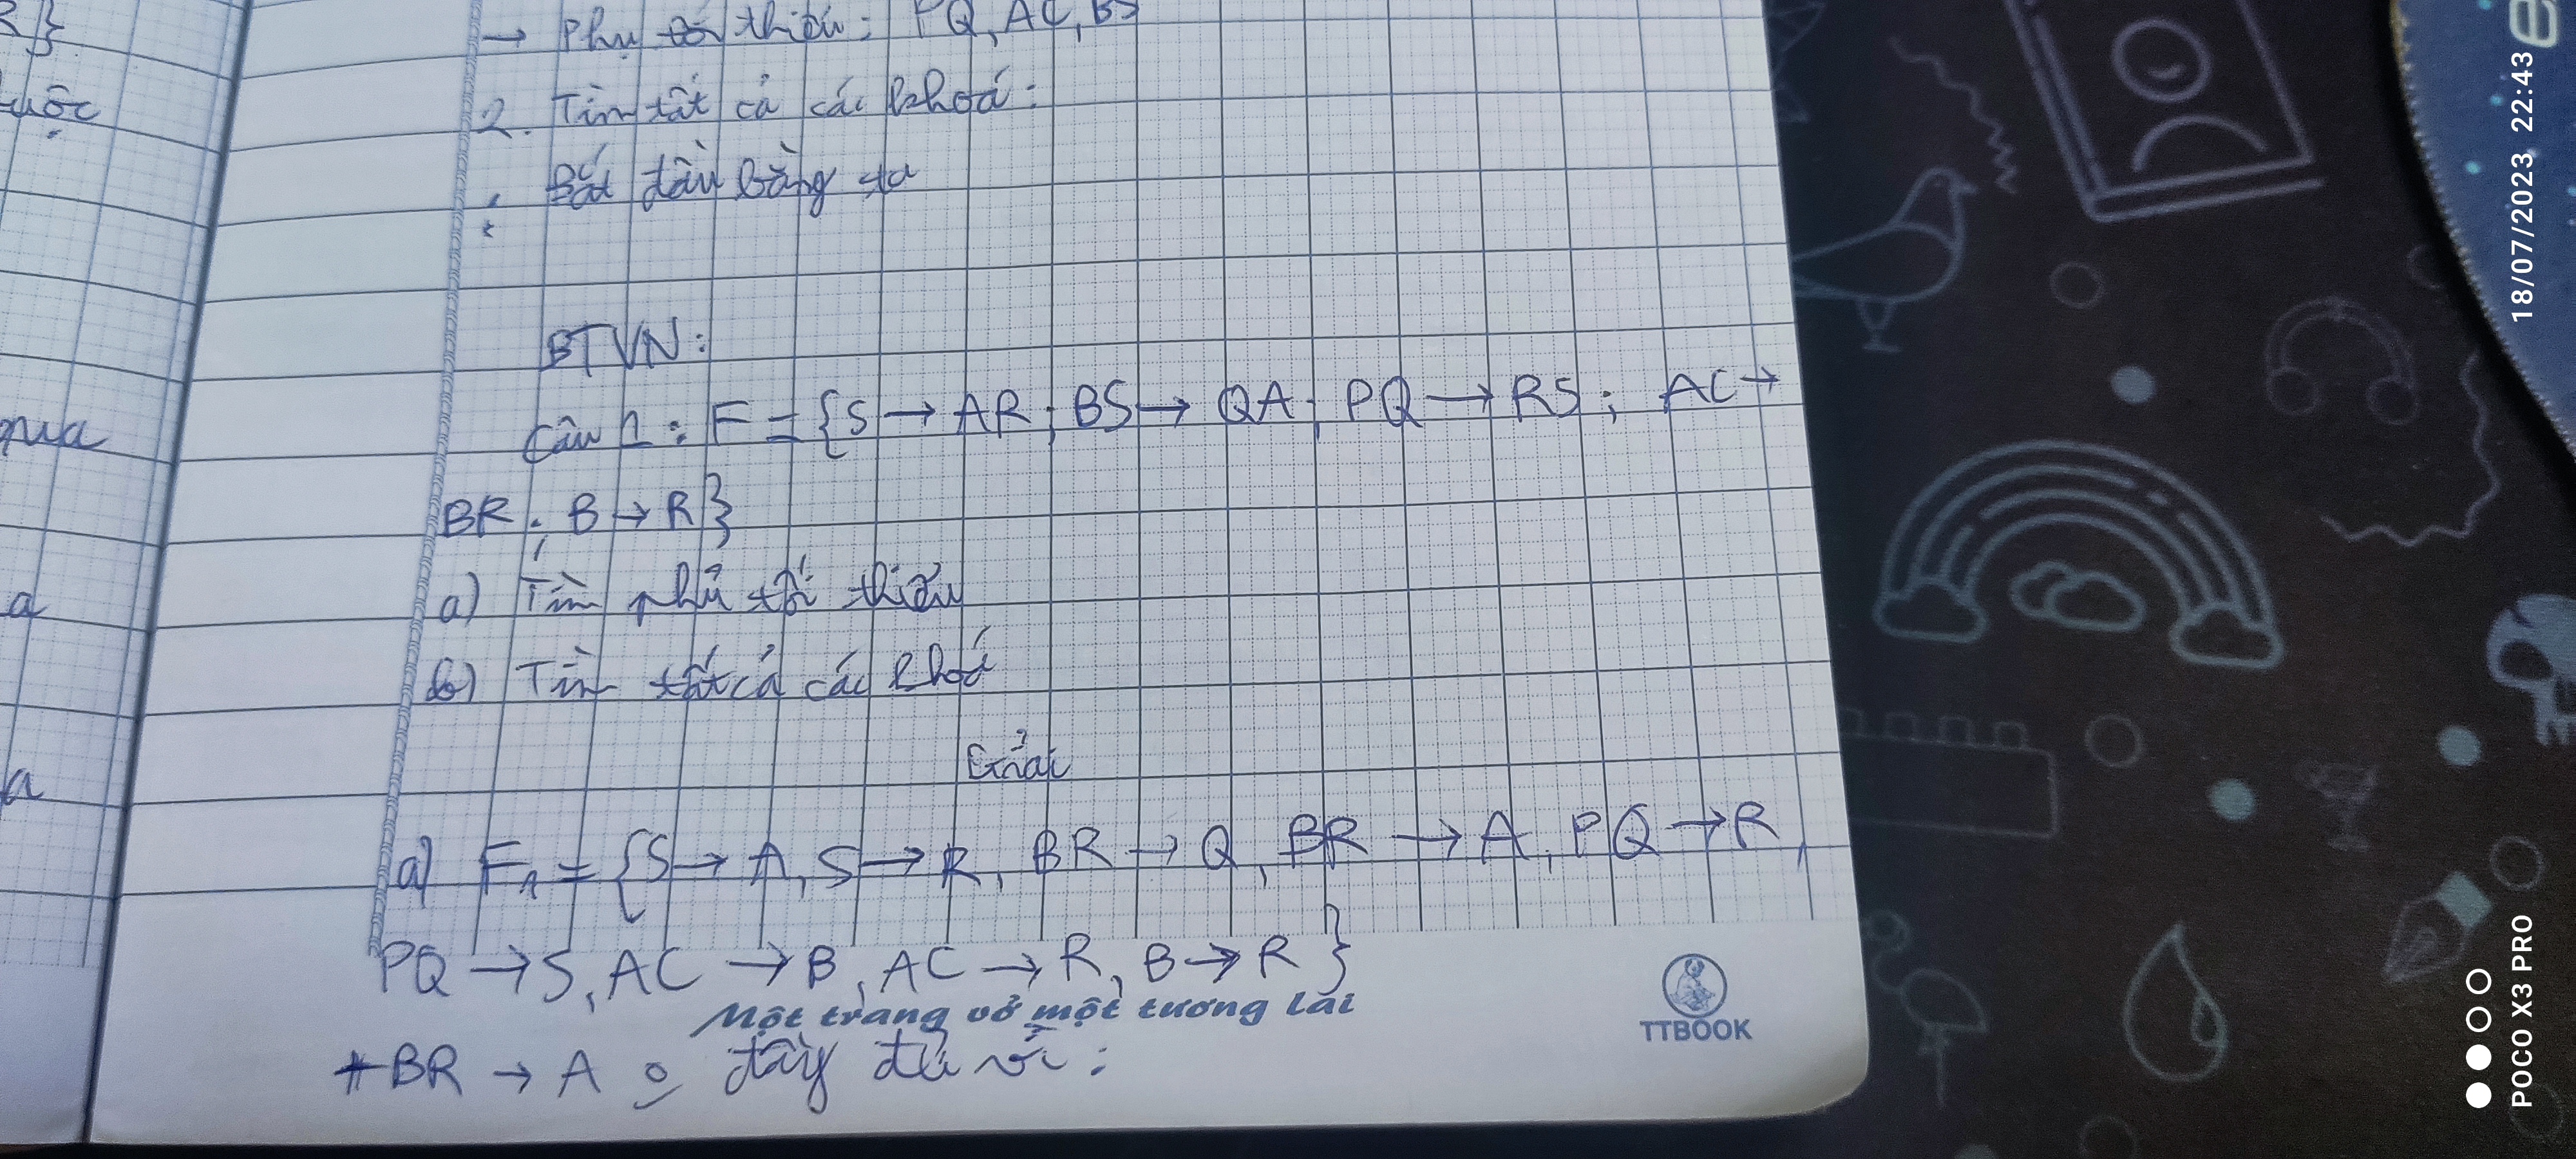 R}
uộc
qua
a
n
→ Phụ tối thiểu: PQ, AC, BS
2. Tìm tất cả các khoá:
* Bắt đầu bằng
BTVN:
Câu 1: F = {S → AR; BS → QA; PQ → RS; AC →
BR. B → R}
a) Tìm phủ tối thiểu
b) Tìm tất cả các khoá
Giải
a) F1 = {S → A, S → R, BR → Q, BR → A, PQ → R,
PQ → S, AC → B, AC → R, B → R}
Một trang vở một tương lai
* BR → A đầy đủ vì:
TTBOOK
POCO X3 PRO
18/07/2023 22:43
e